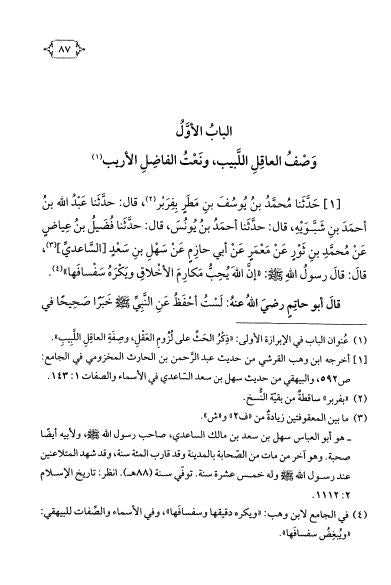 ٨٧
البابُ الأوَّلُ
وَصْفُ العاقِلِ اللَّبيب، ونَعْتُ الفاضِلِ الأريب(١)
[١] حَدَّثَنا مُحمَّدُ بنُ يُوسُفَ بنِ مَطَرٍ بِفِرَبْرَ(٢)، قال: حدَّثَنا عَبْدُ الله بنُ
أحمدَ بنِ شَبَّوَيْهِ، قال: حدَّثَنا أحمدُ بنُ يُونُسَ، قال: حدَّثَنا فُضَيلُ بنُ عِياضٍ
عَنْ مُحمدِ بنِ ثَوْرٍ عَنْ مَعْمَرٍ عَنْ أبي حازِمٍ عَنْ سَهْلِ بنِ سَعْدٍ [السَّاعديِّ](٣)،
قالَ: قالَ رسولُ اللهِ ﷺ: «إنَّ اللهَ يُحِبُّ مَكارِمَ الأخْلاقِ ويَكْرَهُ سَفْسافَها»(٤).
قال أبو حاتِمٍ رضيَ اللهُ عنهُ: لَسْتُ أحْفَظُ عَنِ النَّبيِّ ﷺ خَبَرًا صَحيحًا في
(١) عُنوان الباب في الإبرازة الأولى: «ذِكْرُ الحَثِّ على لُزُومِ العَقْلِ، وصِفَةِ العاقلِ اللَّبيبِ».
[١] أخرجه ابن وهب القرشي من حديث عبد الرَّحمن بن الحارث المخزومي في الجامع:
ص٥٩٢، والبيهقي من حديث سهل بن سعد السَّاعدي في الأسماء والصفات ١: ١٤٣.
(٢) «بفربر» ساقطةٌ من بقيَّة النُّسخ.
(٣) ما بين المعقوفتين زيادةٌ من «ف٢» و«ش».
ـ هو أبو العباس سهل بن سعد بن مالك الساعدي، صاحب رسول الله ﷺ، ولأبيه أيضًا
صحبة. وهو آخر من مات من الصَّحابة بالمدينة وقد قارب المئة سنة، وقد شهد المتلاعنين
عند رسول الله ﷺ وله خمس عشرة سنة. توفّي سنة (٨٨هـ). انظر: تاريخ الإسلام
٢: ١١١٢.
(٤) في الجامع لابن وهب: «ويكره دقيقها وسفسافها»، وفي الأسماء والصِّفات للبيهقي:
«ويُبغِضُ سفسافَها».